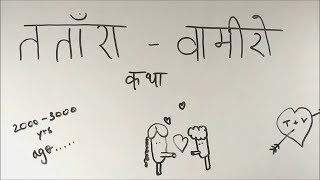 तताँरा - वामीरो
कथा
2000-3000
yrs
ago.....
T + V